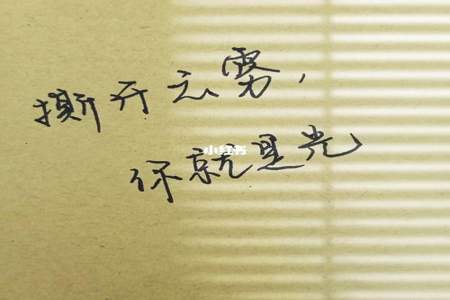 撕开云雾，
你就是光
小红书